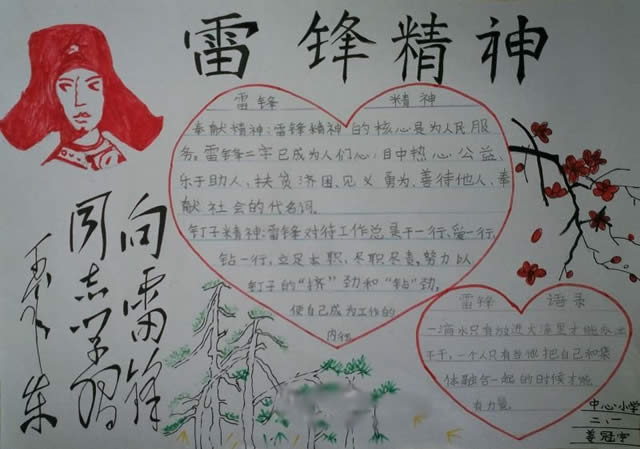 雷锋精神
雷锋 精神
奉献精神:雷锋精神的核心是为人民服
务。雷锋二字已成为人们心目中热心公益、
乐于助人、扶贫济困、见义勇为、善待他人、奉
献社会的代名词。
钉子精神:雷锋对待工作总是干一行,爱一行,
钻一行,立足本职、尽职尽责。努力以
钉子的“挤”劲和“钻”劲,
使自己成为工作的
内行。
向雷锋
同志学习
毛泽东
雷锋 语录
一滴水只有放进大海里才能永远
不干,一个人只有当他把自己和集
体融合一起的时候才能
有力量。
中心小学
姜冠